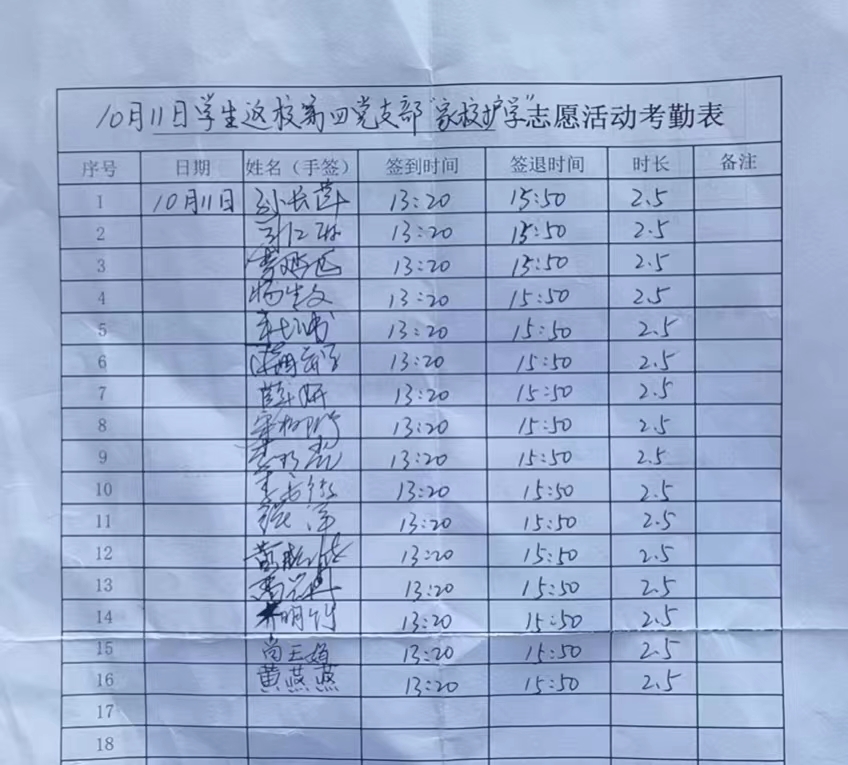 10月11日学生返校第四党支部“家校护学”志愿活动考勤表
序号 日期 姓名（手签） 签到时间 签退时间 时长 备注
1 10月11日 孙长萍 13:20 15:50 2.5
2 13:20 15:50 2.5
3 13:20 15:50 2.5
4 杨生文 13:20 15:50 2.5
5 13:20 15:50 2.5
6 13:20 15:50 2.5
7 13:20 15:50 2.5
8 13:20 15:50 2.5
9 13:20 15:50 2.5
10 13:20 15:50 2.5
11 13:20 15:50 2.5
12 13:20 15:50 2.5
13 13:20 15:50 2.5
14 13:20 15:50 2.5
15 13:20 15:50 2.5
16 黄燕燕 13:20 15:50 2.5
17
18